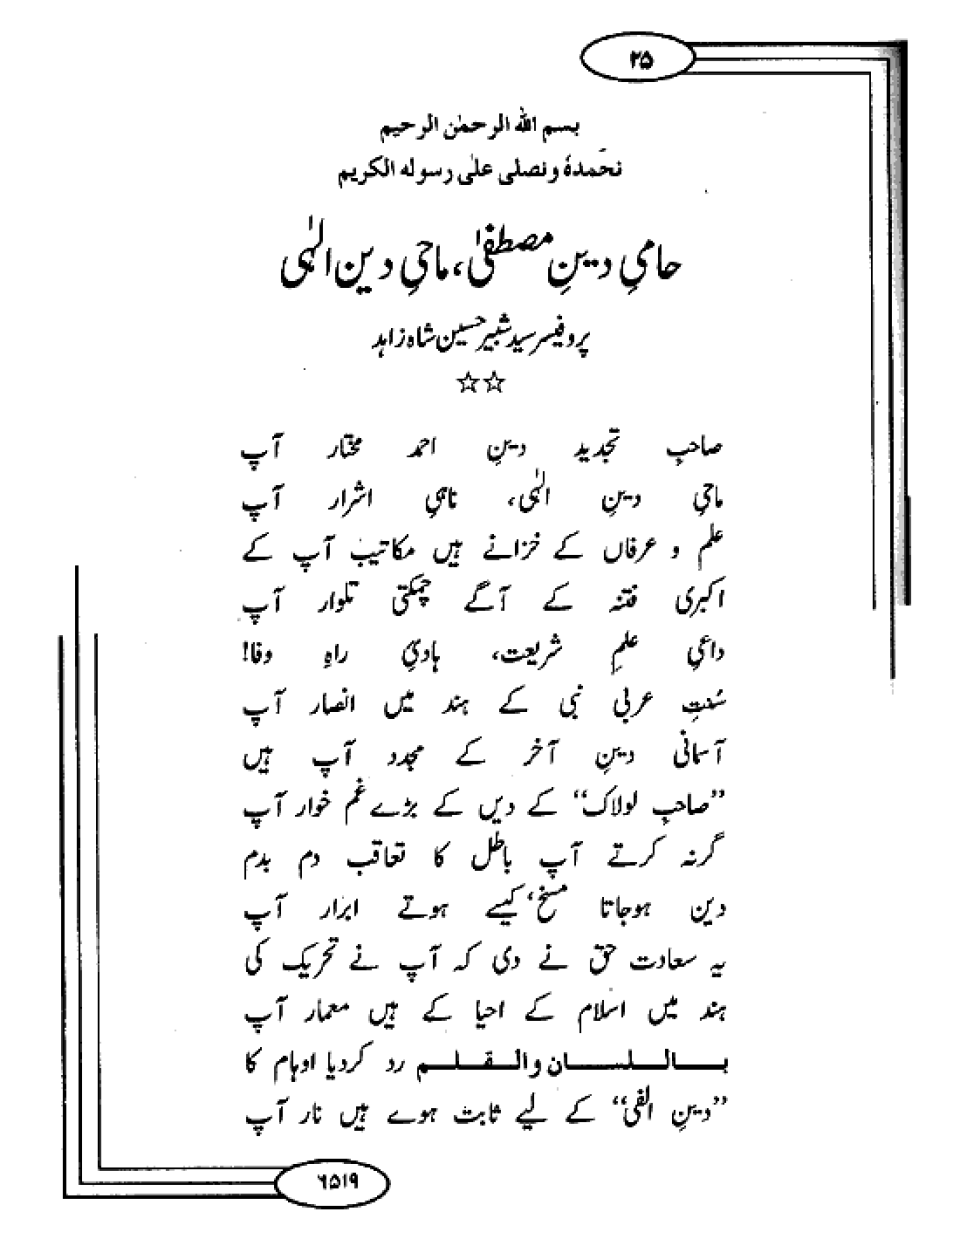 ۲۵
بسم اللہ الرحمٰن الرحیم
نحمدہٗ ونصلی علٰی رسولہ الکریم
حامیِ دینِ مصطفیٰ، ماحیِ دین الٰہی
پروفیسر سید شبیر حسین شاہ زاہد
☆☆
صاحبِ تجدید دینِ احمد مختار آپ
ماحیِ دینِ الٰہی، ناہیِ اشرار آپ
علم و عرفاں کے خزانے ہیں مکاتیب آپ کے
اکبری فتنہ کے آگے چمکتی تلوار آپ
داعیِ علمِ شریعت، ہادیِ راہِ وفا!
سُنتِ عربی نبی کے ہند میں انصار آپ
آسمانی دینِ آخر کے مجدد آپ ہیں
”صاحبِ لولاک“ کے دیں کے بڑے غم خوار آپ
گرنہ کرتے آپ باطل کا تعاقب دم بدم
دین ہوجاتا مسخ، کیسے ہوتے ابرار آپ
یہ سعادت حق نے دی کہ آپ نے تحریک کی
ہند میں اسلام کے احیا کے ہیں معمار آپ
باللسان والقلم رد کردیا اوہام کا
”دینِ الفی“ کے لیے ثابت ہوے ہیں نار آپ
۶۵۱۹